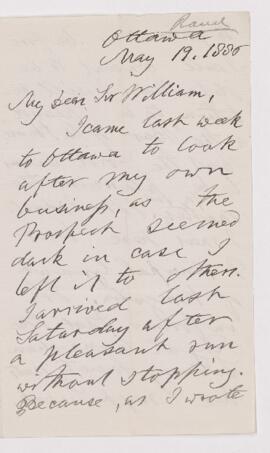 Rand
Ottawa
May 19. 1886
My dear Sir William,
I came last week
to Ottawa to look
after my own
business, as the
Prospect seemed
dark in case I
left it to others.
I arrived last
Saturday after
a pleasant run
without stopping.
Because, as I wrote